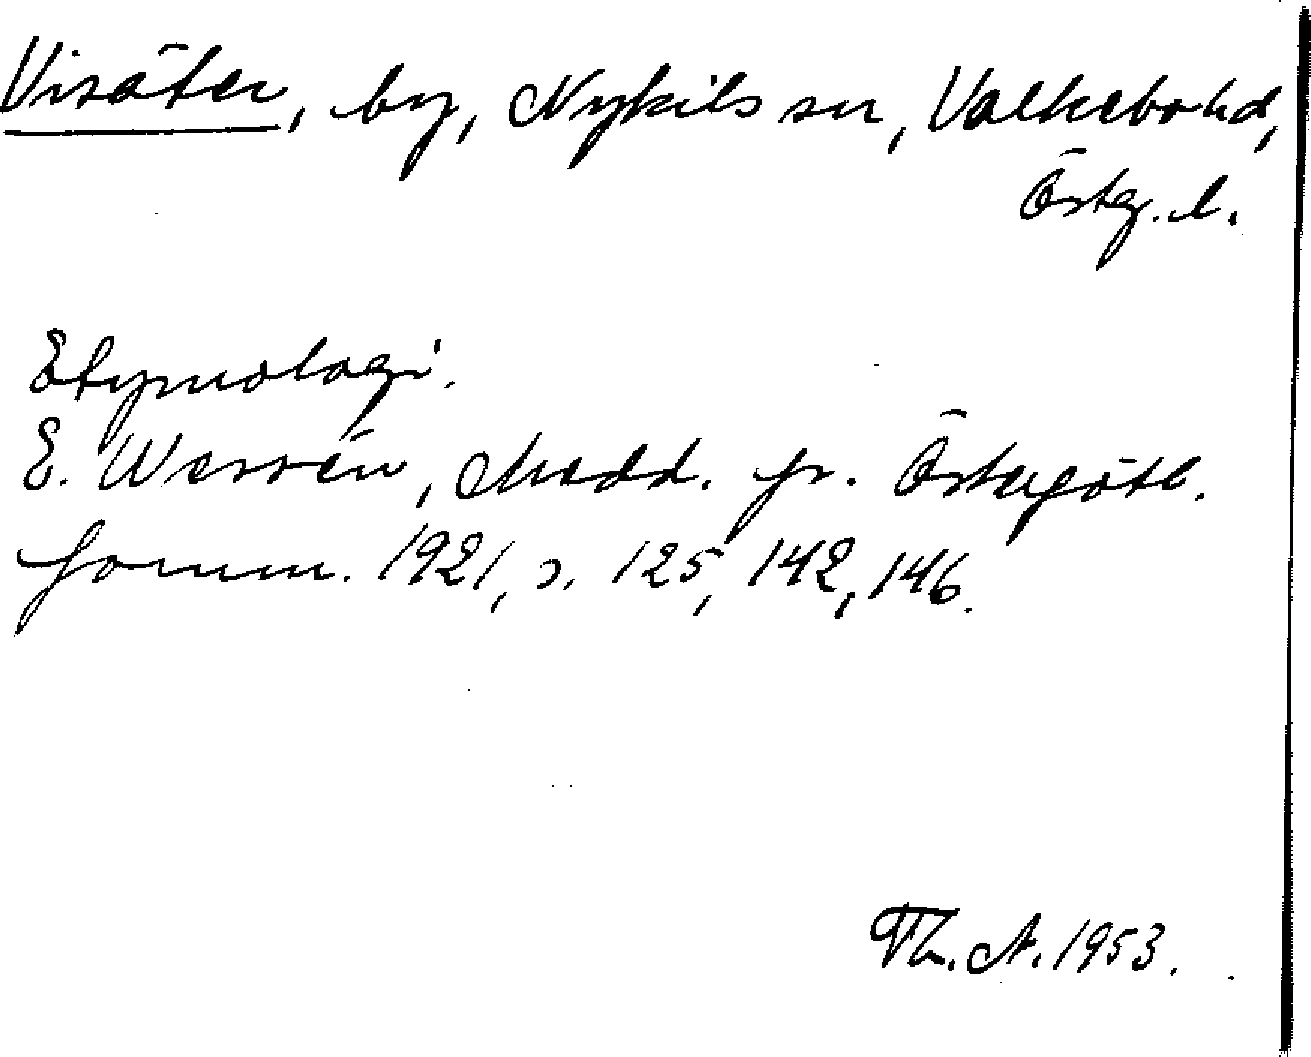 Visäter, by, Nykils sn, Valkebo hd,
Östg. l.
Etymologi.
E. Wessén, Medd. fr. Östergötl.
fornm. 1921, s. 125, 142, 146.
Th. A. 1953.